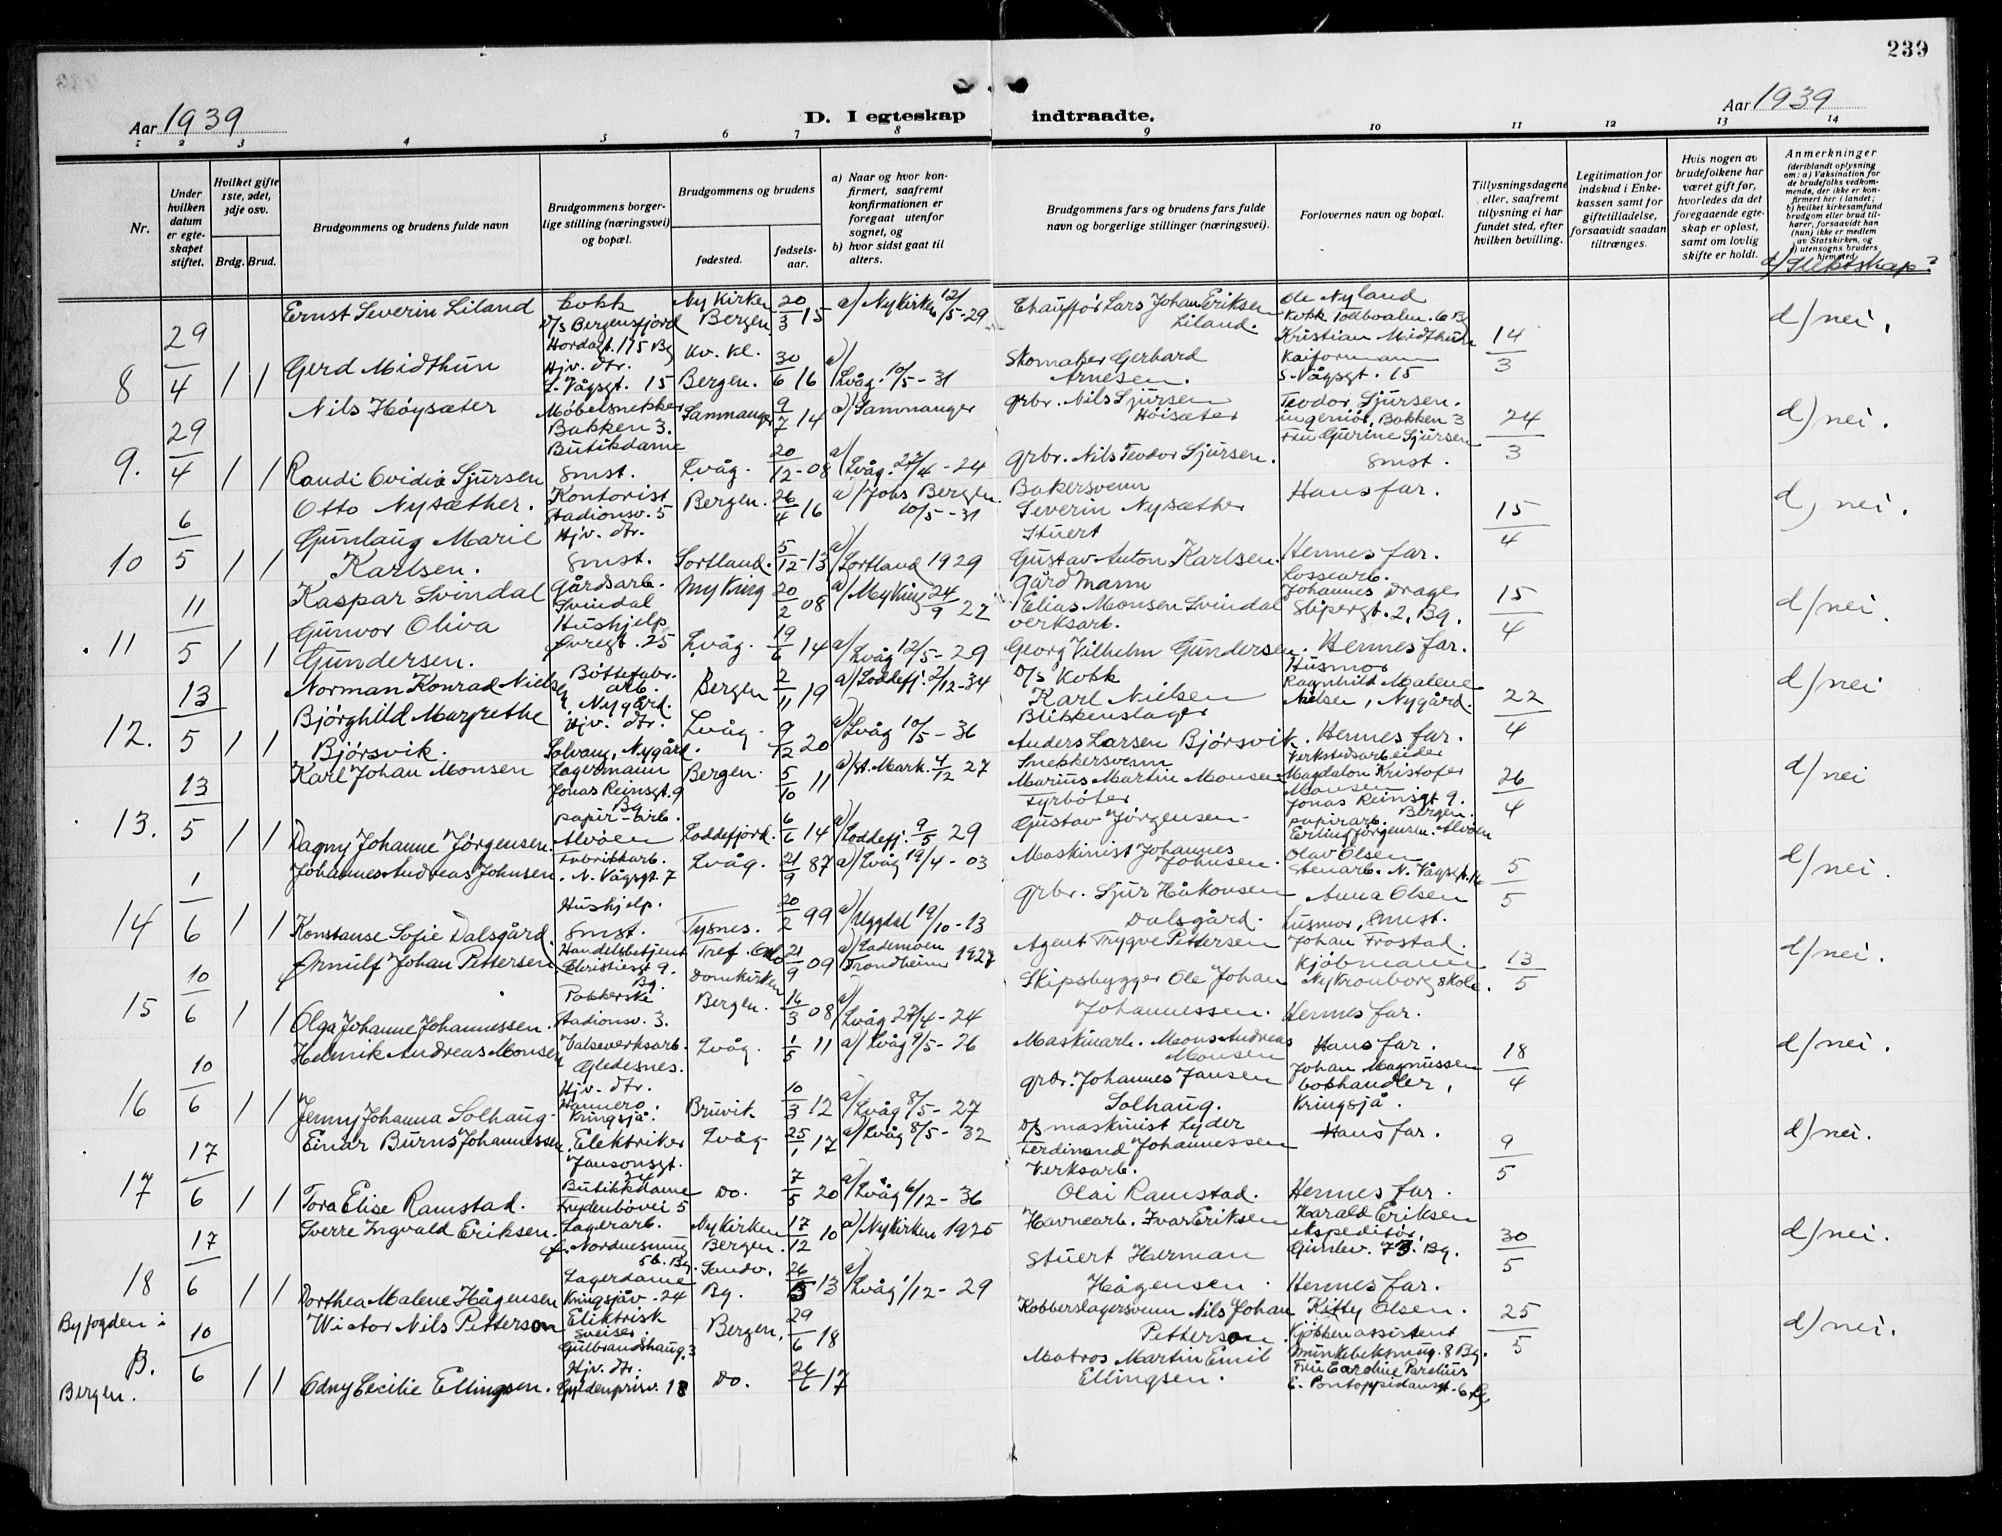 239
Aar 1939
D. I egteskap indtraadte.
Aar 1939
1 2 3 4 5 6 7 8 9 10 11 12 13 14
Nr.
Under hvilken datum er egteskapet stiftet.
Hvilket gifte 1ste, 2det, 3dje osv.
Brdg. Brud.
Brudgommens og brudens fulde navn
Brudgommens borgerlige stilling (næringsvei) og bopæl.
Brudgommens og brudens
fødested.
fødselsaar.
a) Naar og hvor konfirmert, saafremt konfirmationen er foregaat utenfor sognet, og
b) hvor sidst gaat til alters.
Brudgommens fars og brudens fars fulde navn og borgerlige stillinger (næringsvei).
Forlovernes navn og bopæl.
Tillysningsdagene eller, saafremt tillysning ei har fundet sted, efter hvilken bevilling.
Legitimation for indskud i Enkekassen samt for giftetilladelse, forsaavidt saadan tiltrænges.
Hvis nogen av brudefolkene har været gift før, hvorledes da det foregaaende egteskap er opløst, samt om lovlig skifte er holdt.
Anmerkninger
(deriblandt oplysning om: a) Vaksination for de brudefolks vedkommende, der ikke er konfirmert her i landet; b) hvilket kirkesamfund brudgom eller brud tilhører, forsaavidt han (hun) ikke er medlem av Statskirken, og c) utensogns bruders hjemsted
d) Slektskap?
8 29/4 1 1
Ernst Severin Liland
Kokk
D/s Bergensfjord
Hordagt. 175 Bg
Nykirken
Bergen
20/3 15
a) Nykirken 12/5-29
Chauffør Lars Johan Eriksen
Liland.
Ole Nyland
Kokk Tollboalm. 6 Bg
14/3
d) nei.
Gerd Midthun
Hjv. dtr.
S. Vågsgt. 15
Kv. kl.
Bergen.
30/6 16
a) Lvåg. 10/5-31
Skomaker Gerhard
Arnesen.
Kristian Midthun
Kaiformann
S. Vågsgt. 15
9. 29/4 1 1
Nils Høysæter
Møbelsnekker
Bakken 3.
Samnanger
9/7 14
a) Samnanger
grbr. Nils Sjursen
Høisæter
Teodor Sjursen.
ingeniør, Bakken 3
24/3
d) nei.
Randi Ovidia Sjursen
Butikdame
Smst.
Lvåg.
20/12-08
a) Lvåg. 27/4-24
grbr. Nils Teodor Sjursen.
Fru Gurine Sjursen
Smst.
10 6/5 1 1
Otto Nysæther.
Kontorist
Stadionsv. 5
Bergen.
26/4 16
a) Johs Bergen
10/5-31
Bakersvenn
Severin Nysæther
Hans far.
15/4
d) nei.
Gunlaug Marie
Karlsen.
Hjv. dtr.
Smst.
Sortland.
5/12-13
a) Sortland 1929
Stuert
Gustav Anton Karlsen.
Hennes far.
11 11/5 1 1
Kaspar Svindal
Gårdsarb.
Svindal
Myking
20/2 08
a) Myking 24/9 22
Gårdmann
Elias Monsen Svindal
Lossearb.
Johannes Drage
Slipergt. 2, Bg.
15/4
d) nei.
Gunvor Oliva
Gundersen.
Hushjelp
Øvregt. 25
Lvåg.
19/6 14
a) Lvåg 12/5-29
verksarb.
Georg Vilhelm Gundersen.
Hennes far.
12. 13/5 1 1
Norman Konrad Nielsen
Bøttefabr.
arb.
Nygård.
Bergen
2/11 19
a) Loddefj. 2/12-34
D/s Kokk
Karl Nielsen
Husmor
Ragnhild Malene
Nielsen, Nygård.
22/4
d) nei
Bjørghild Margrethe
Bjørsvik.
Hjv. dtr.
Solvang, Nygård.
Lvåg.
9/12 20
a) Lvåg 10/5-36
Blikkenslager
Anders Larsen Bjørsvik.
Hennes far.
13. 13/5 1 1
Karl Johan Monsen
Lagermann
Jonas Reinsgt. 9
Bg
Bergen.
5/10 11
a) St. Mark. 4/12 27
Snekkersvenn
Marius Martin Monsen
Verkstedsarbeider
Magdalon Kristofer
Monsen
Jonas Reinsgt 9.
Bergen.
26/4
d) nei
Dagny Johanne Jørgensen.
papir-arb.
Alvøen
Loddefjord.
6/6 14
a) Loddefj. 9/5 29
Fyrbøter
Gustav Jørgensen
papirarb.
Erling Jørgensen. Alvøen
14 1/6 1 1
Johannes Andreas Johnsen
Fabrikkarb.
N. Vågsgt. 7
Lvåg.
21/9 87
a) Lvåg 19/4-03
Maskinist Johannes
Johnsen.
Olav Olsen
Stenarb. N. Vågsgt. 16
5/5
d) nei.
Konstanse Sofie Dalsgård.
Hushjelp.
Smst.
Tysnes.
20/2 99
a) Uggdal 19/10-13
grbr. Sjur Håkonsen
Dalsgård.
Anna Olsen
husmor, Smst.
15 10/6 1 1
Arnulf Johan Pettersen
Handelsbetjent
Christiesgt 9.
Bg.
Tref. Oslo
21/9 09
a) Lademoen
Trondheim 1924
Agent Trygve Pettersen
Johan Frostad.
Kjøbmann
Ny Kronborg skole.
13/5
d) nei.
Olga Johanne Johannessen.
Pakkerske
Stadionsv. 3.
Domkirken
Bergen.
16/3 08
a) Lvåg 27/4-24
Skipsbygger Ole Johan
Johannessen.
Hennes far.
16 10/6 1 1
Henrik Andreas Monsen
Valseverksarb.
Gledesnes.
Lvåg.
1/5 11
a) Lvåg 9/5-26
Maskinarb. Mons Andreas
Monsen
Hans far.
18/4
d) nei.
Jenny Johanna Solhaug.
Hjv. dtr.
Hannero.
Kringsjå.
Bruvik.
10/3 12
a) Lvåg 8/5-27
grbr. Johannes Jansen
Solhaug.
Johan Magnussen
bokhandler,
Kringsjå.
17 17/6 1 1
Einar Burns Johannessen
Elektriker
Jansonsgt.
Lvåg
25/1 17
a) Lvåg 8/5-32
D/s maskinist Lyder
Ferdinand Johannessen
Hans far.
9/5
d) nei.
Tora Elise Ramstad.
Butikkdame
Frydenbøvei 5
Do.
7/5 20
a) Lvåg 6/12-36
Verksarb.
Olai Ramstad.
Hennes far.
18 17/6 1 1
Sverre Ingvald Eriksen.
Lagerarb.
Nordnesmug
56. Bg.
Nykirken
Bergen.
17/12 10
a) Nykirken 1925
Havnearb. Ivar Eriksen
Harald Eriksen
ekspeditør.
Gimlev. 73. Bg.
30/5
d) nei.
Dorthea Malene Hågensen
Lagerdame
Kringsjåv. 24
Sandv.
Bg.
26/5 13
a) Lvåg 1/12-29
Stuert Herman
Hågensen.
Hennes far.
Byfogden i
B.
Bergen.
10/6 1 1
Wictor Nils Petterson
Elektrisk
sveiser
Gulbrandshaug. 3
Bergen,
29/6 18
Kobberslagersvenn Nils Johan
Petterson.
Kitty Olsen.
Kjøkkenassistent
Munkebeksmug. 8 Bg.
25/5
d) nei.
Odny Cecilie Ellingsen.
Hjv. dtr.
Gyldenprisv. 18
Do.
26/6 17
Matros Martin Emil
Ellingsen.
Fru Caroline Parelius
E. Pontoppidansgt. 6 Bg